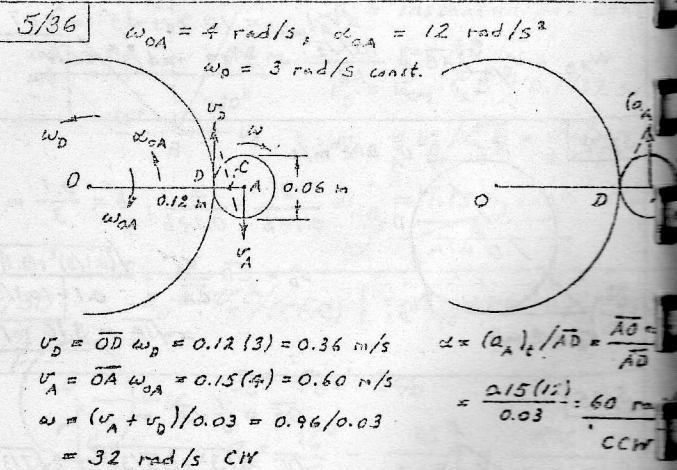 5/36
ω_OA = 4 rad/s, α_OA = 12 rad/s²
ω_D = 3 rad/s const.
ω_D
α_OA
v_D
ω
(a_A
O
0.12 m
D
C
A
0.06 m
O
D
ω_OA
v_A
v_D = OD ω_D = 0.12 (3) = 0.36 m/s
v_A = OA ω_OA = 0.15(4) = 0.60 m/s
ω = (v_A + v_D)/0.03 = 0.96/0.03
= 32 rad/s CW
α = (a_A)_t /AD = AO / AD
= 0.15(12) / 0.03 = 60 ra
CCW